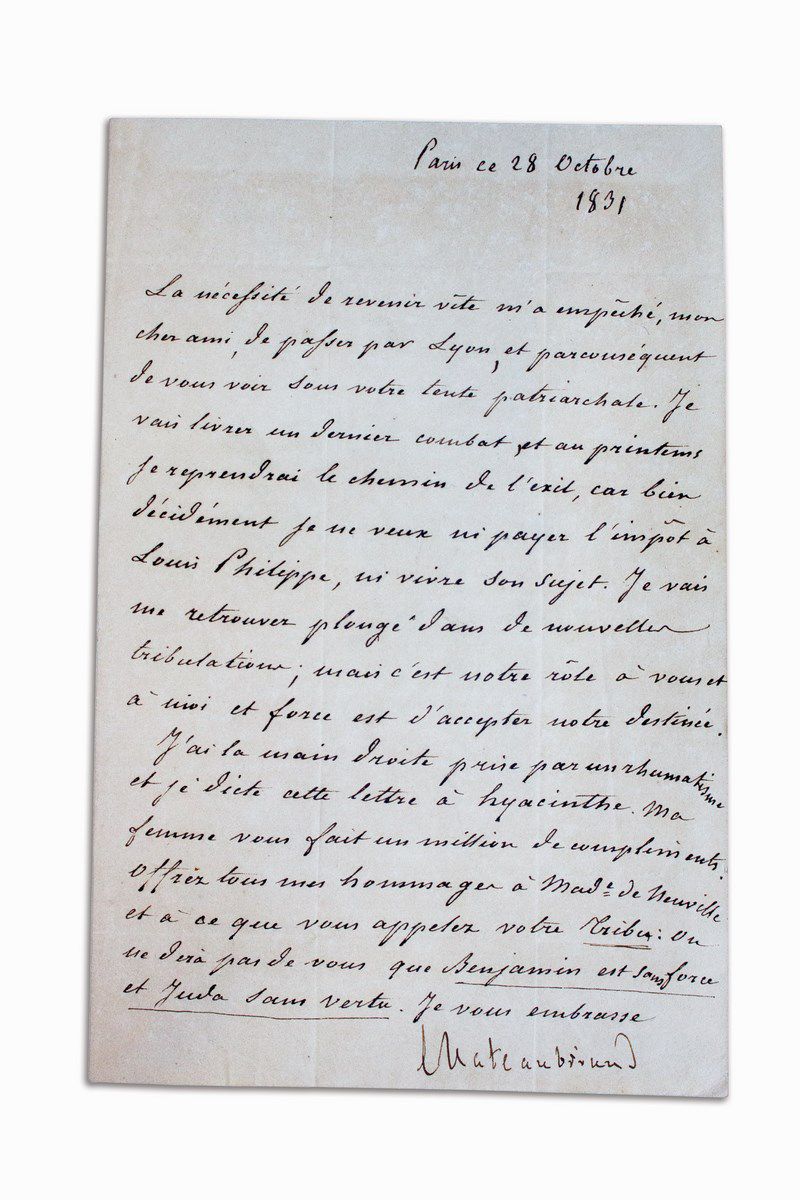 Paris ce 28 Octobre
1831
La nécessité de revenir vîte m'a empêché, mon
cher ami, de passer par Lyon, et parconséquent
de vous voir sous votre tente patriarchale. Je
vais livrer un dernier combat et au printems
je reprendrai le chemin de l'exil, car bien
décidément je ne veux ni payer l'impôt à
Louis Philippe, ni vivre son sujet. Je vais
me retrouver plongé dans de nouvelles
tribulations; mais c'est notre rôle à vous et
à moi et force est d'accepter notre destinée.
J'ai la main droite prise par un rhumatisme
et je dicte cette lettre à hyacinthe. Ma
femme vous fait un million de compliments.
Offrez tous mes hommages à Made. de Neuville
et à ce que vous appelez votre Tribu: On
ne dira pas de vous que Benjamin est sans force
et Juda sans vertu. Je vous embrasse
Chateaubriand